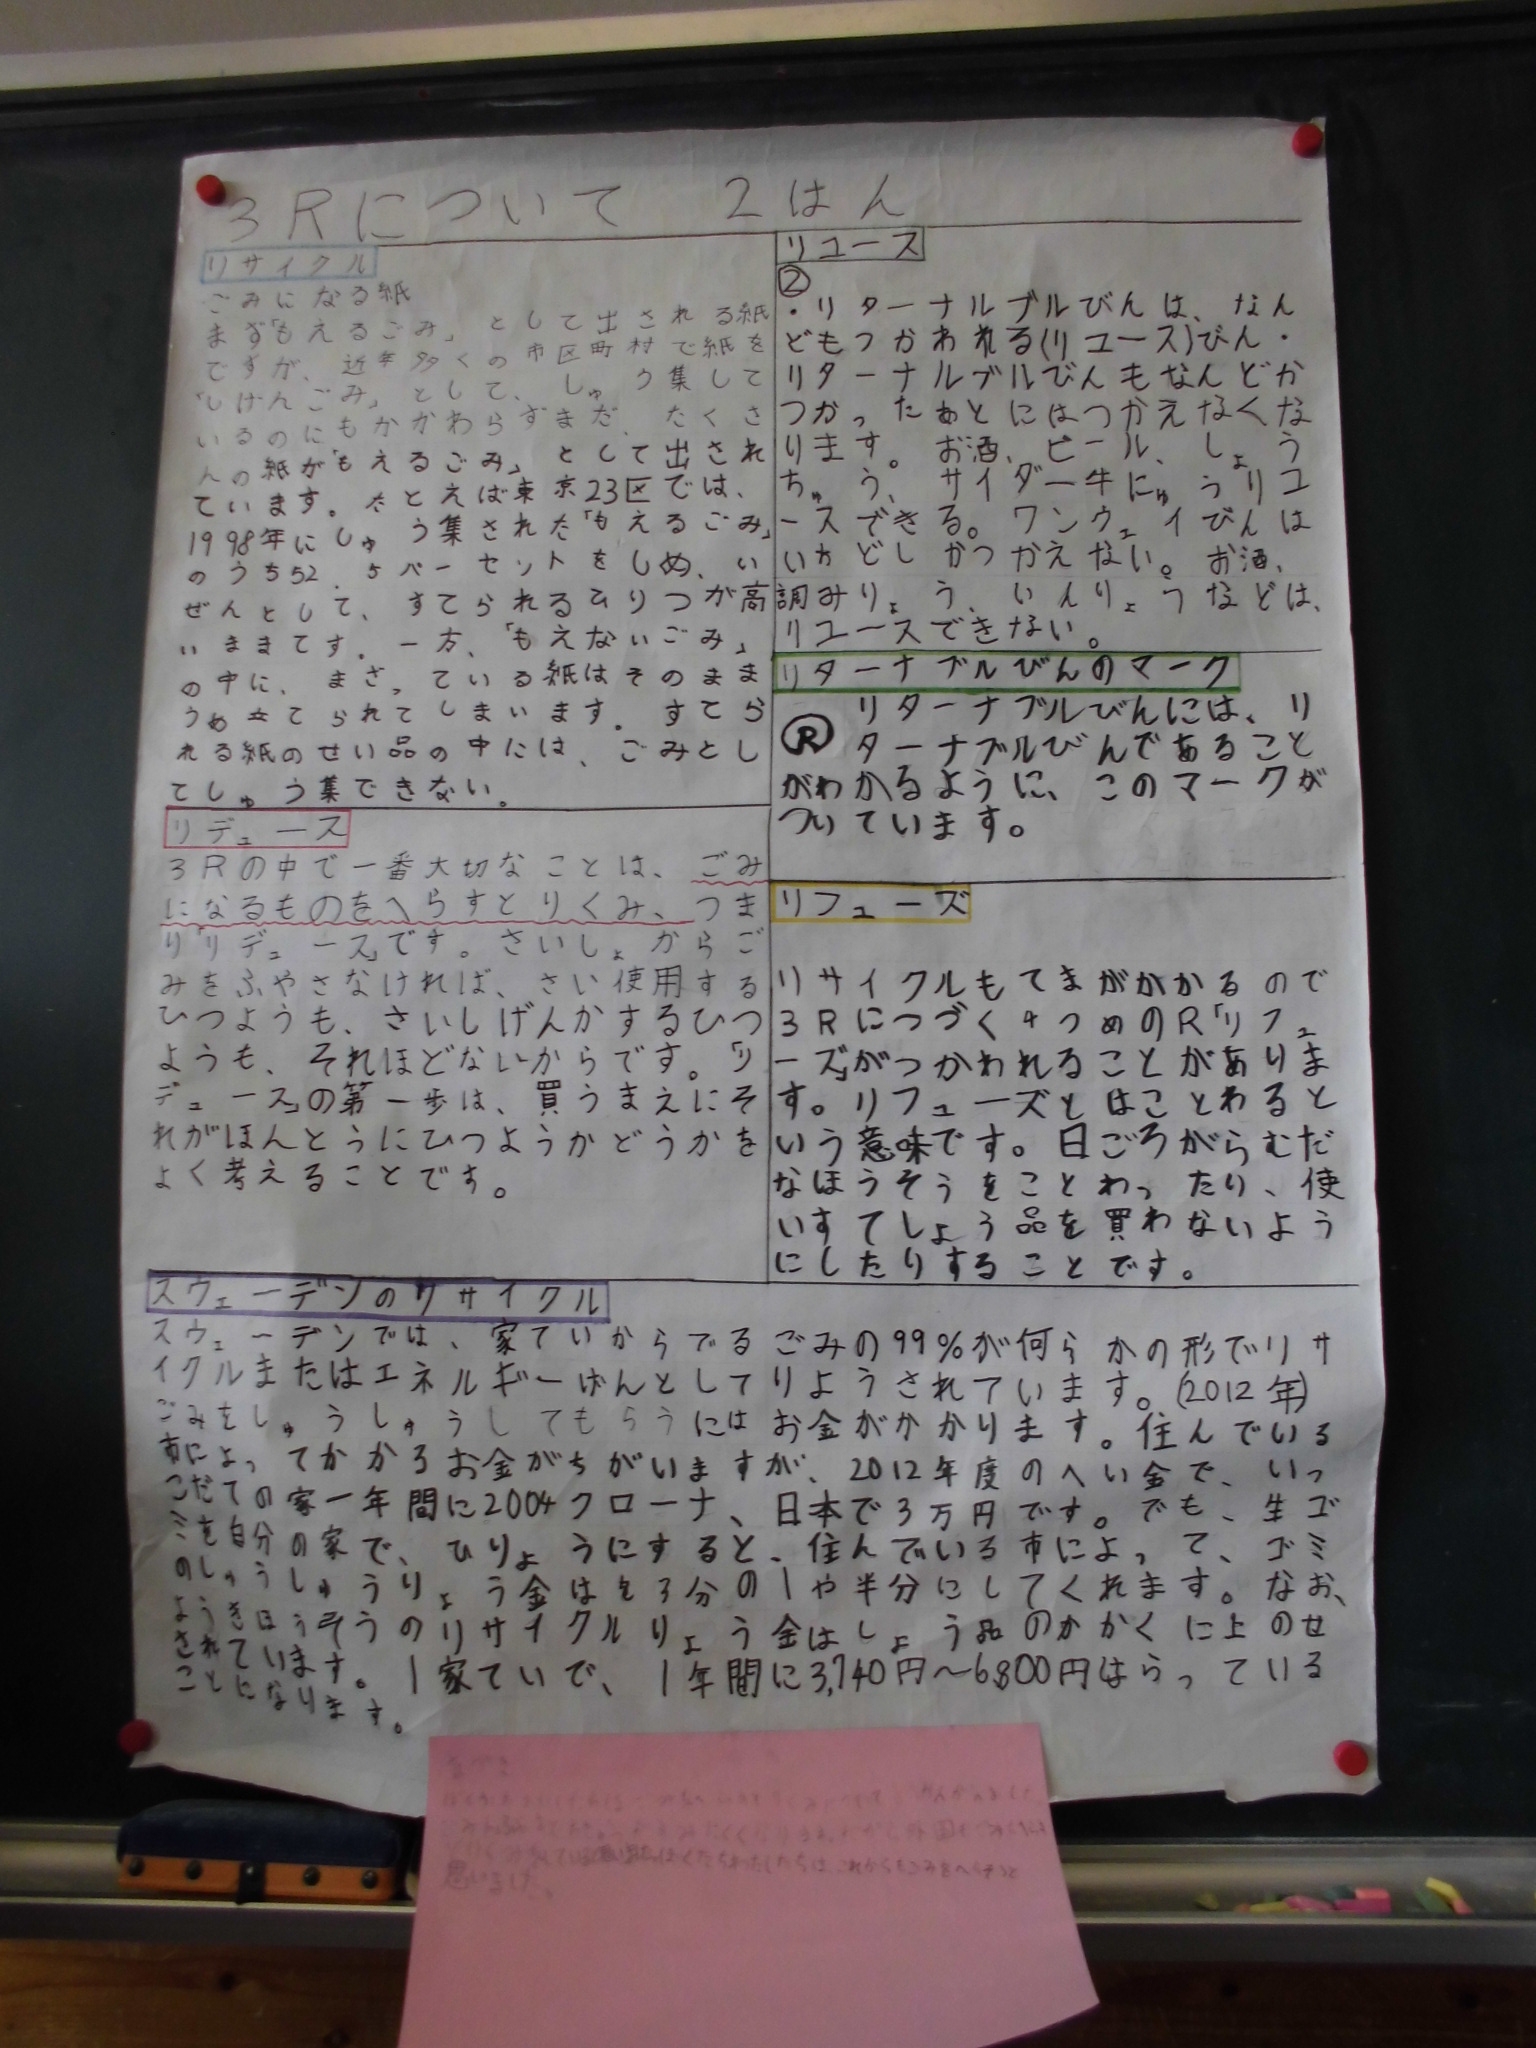 3Rについて 2はん
リサイクル
ごみになる紙
まず「もえるごみ」として出される紙
ですが、近年多くの市区町村で紙を
「しげんごみ」として、しゅう集して
いるのにもかかわらずまだ、たくさ
んの紙が「もえるごみ」として出され
ています。たとえば東京23区では、
1998年にしゅう集された「もえるごみ」
のうち52.5パーセットをしめ、い
ぜんとして、すてられるひりつが高
いままてす。一方、「もえないごみ」
の中に、まざっている紙はそのまま
うめ立てられてしまいます。すてら
れる紙のせい品の中には、ごみとし
てしゅう集できない。
リデュース
3Rの中で一番大切なことは、ごみ
になるものをへらすとりくみ、つま
り「リデュース」です。さいしょからご
みをふやさなければ、さい使用する
ひつようも、さいしげんかするひつ
ようも、それほどないからです。「リ
デュース」の第一歩は、買うまえにそ
れがほんとうにひつようかどうかを
よく考えることです。
リユース
②
・リターナルブルびんは、なん
どもつかわれる(リユース)びん・
リターナルブルびんもなんどか
つかったあとにはつかえなくな
ります。お酒、ビール、しょう
ちゅう、サイダー牛にゅうリユ
ースできる。ワンウェイびんは
いちどしかつかえない。お酒、
調みりょう、いんりょうなどは、
リユースできない。
リターナブルびんのマーク
リターナブルびんには、リ
Ⓡ ターナブルびんであること
がわかるように、このマークが
ついています。
リフューズ
リサイクルもてまがかかるので
3Rにつづく4つめのR「リフュ
ーズ」がつかわれることがありま
す。リフューズとはことわると
いう意味です。日ごろがらむだ
なほうそうをことわったり、使
いすてしょう品を買わないよう
にしたりすることです。
スウェーデンのリサイクル
スウェーデンでは、家ていからでるごみの99%が何らかの形でリサ
イクルまたはエネルギーげんとしてりようされています。(2012年)
ごみをしゅうしゅうしてもらうにはお金がかかります。住んでいる
市によってかかるお金がちがいますが、2012年度のへい金で、いっ
こだての家一年間に2004クローナ、日本で3万円です。でも、生ゴ
ミを自分の家で、ひりょうにすると、住んでいる市によって、ゴミ
のしゅうしゅうりょう金はを3分の1や半分にしてくれます。なお、
ようきほうそうのリサイクルりょう金はしょう品のかかくに上のせ
されています。1家ていで、1年間に3,740円～6,800円はらっている
ことになります。
思いました。